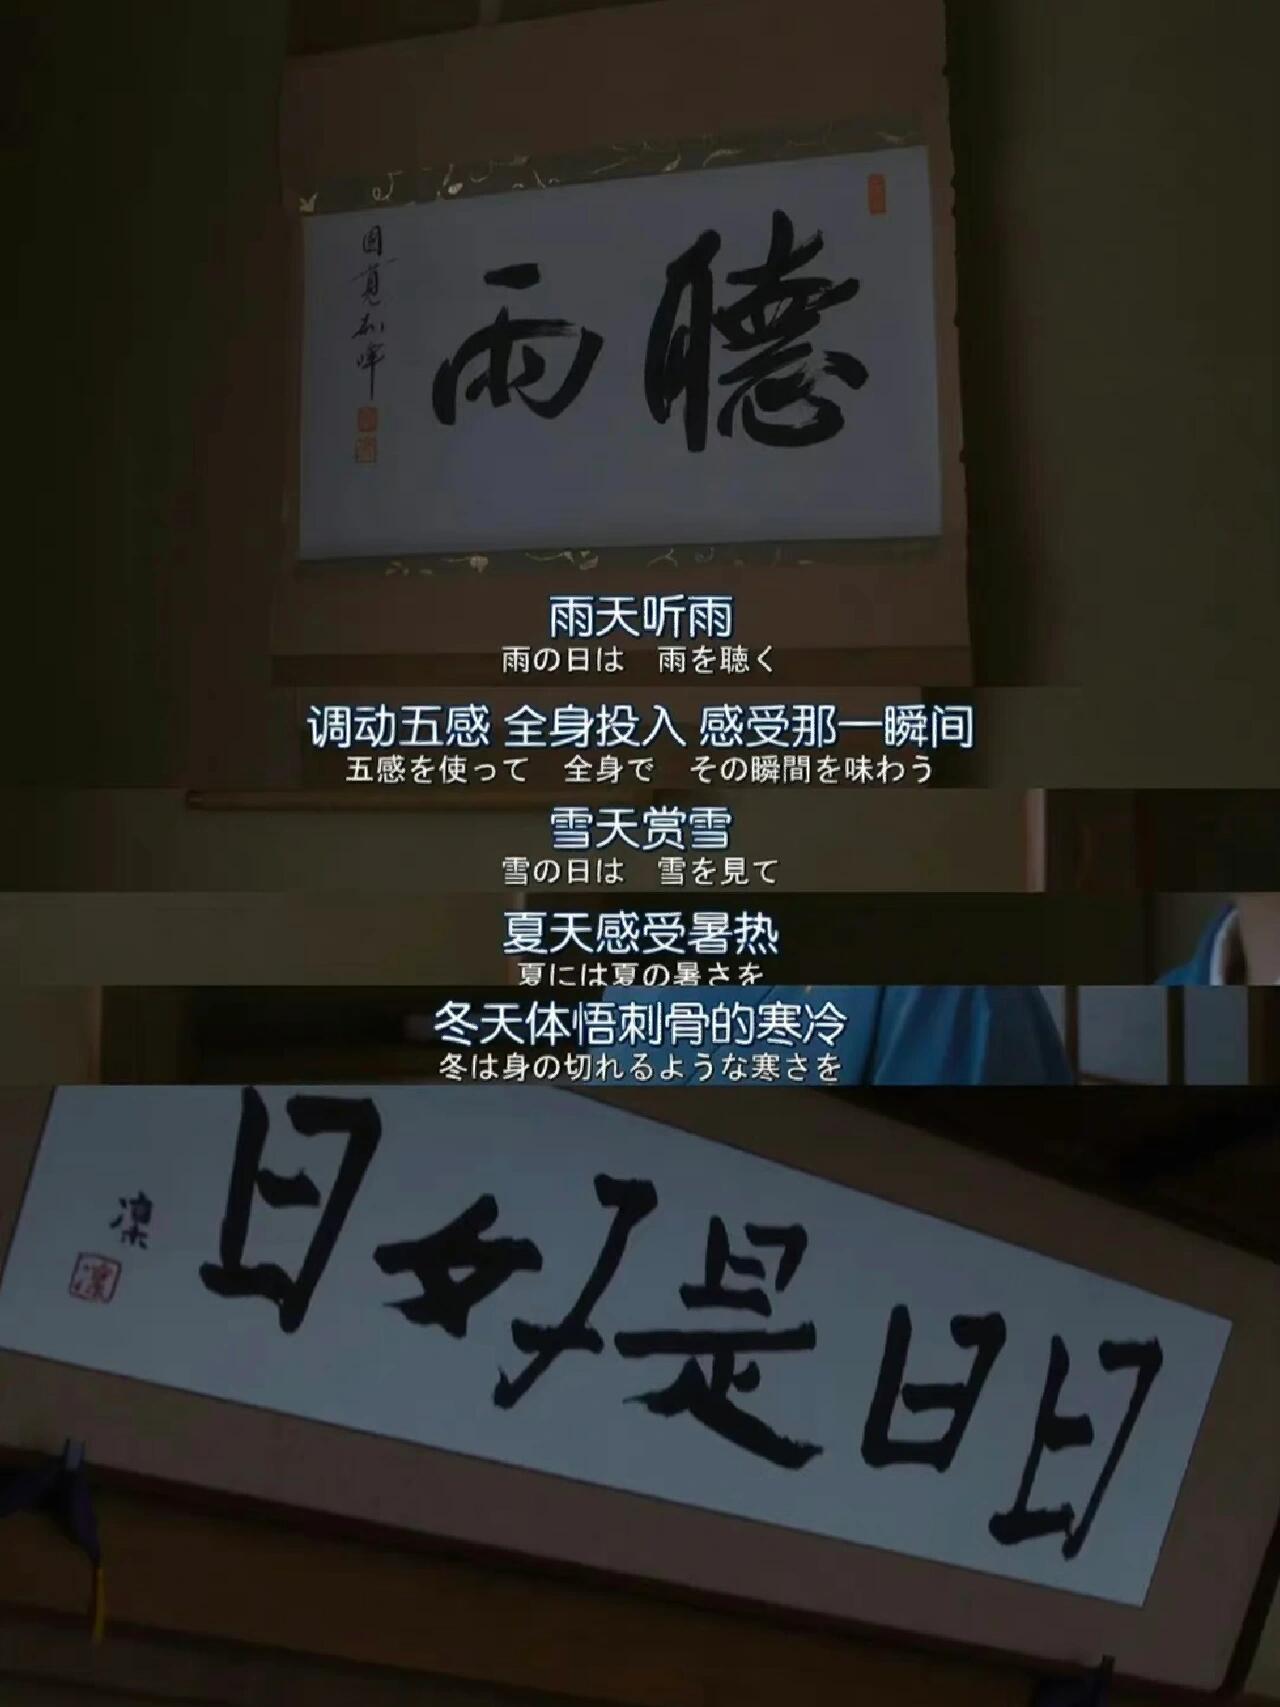 聽雨
雨天听雨
雨の日は　雨を聴く
调动五感 全身投入 感受那一瞬间
五感を使って　全身で　その瞬間を味わう
雪天赏雪
雪の日は　雪を見て
夏天感受暑热
夏には夏の暑さを
冬天体悟刺骨的寒冷
冬は身の切れるような寒さを
日日是好日
凛
凛